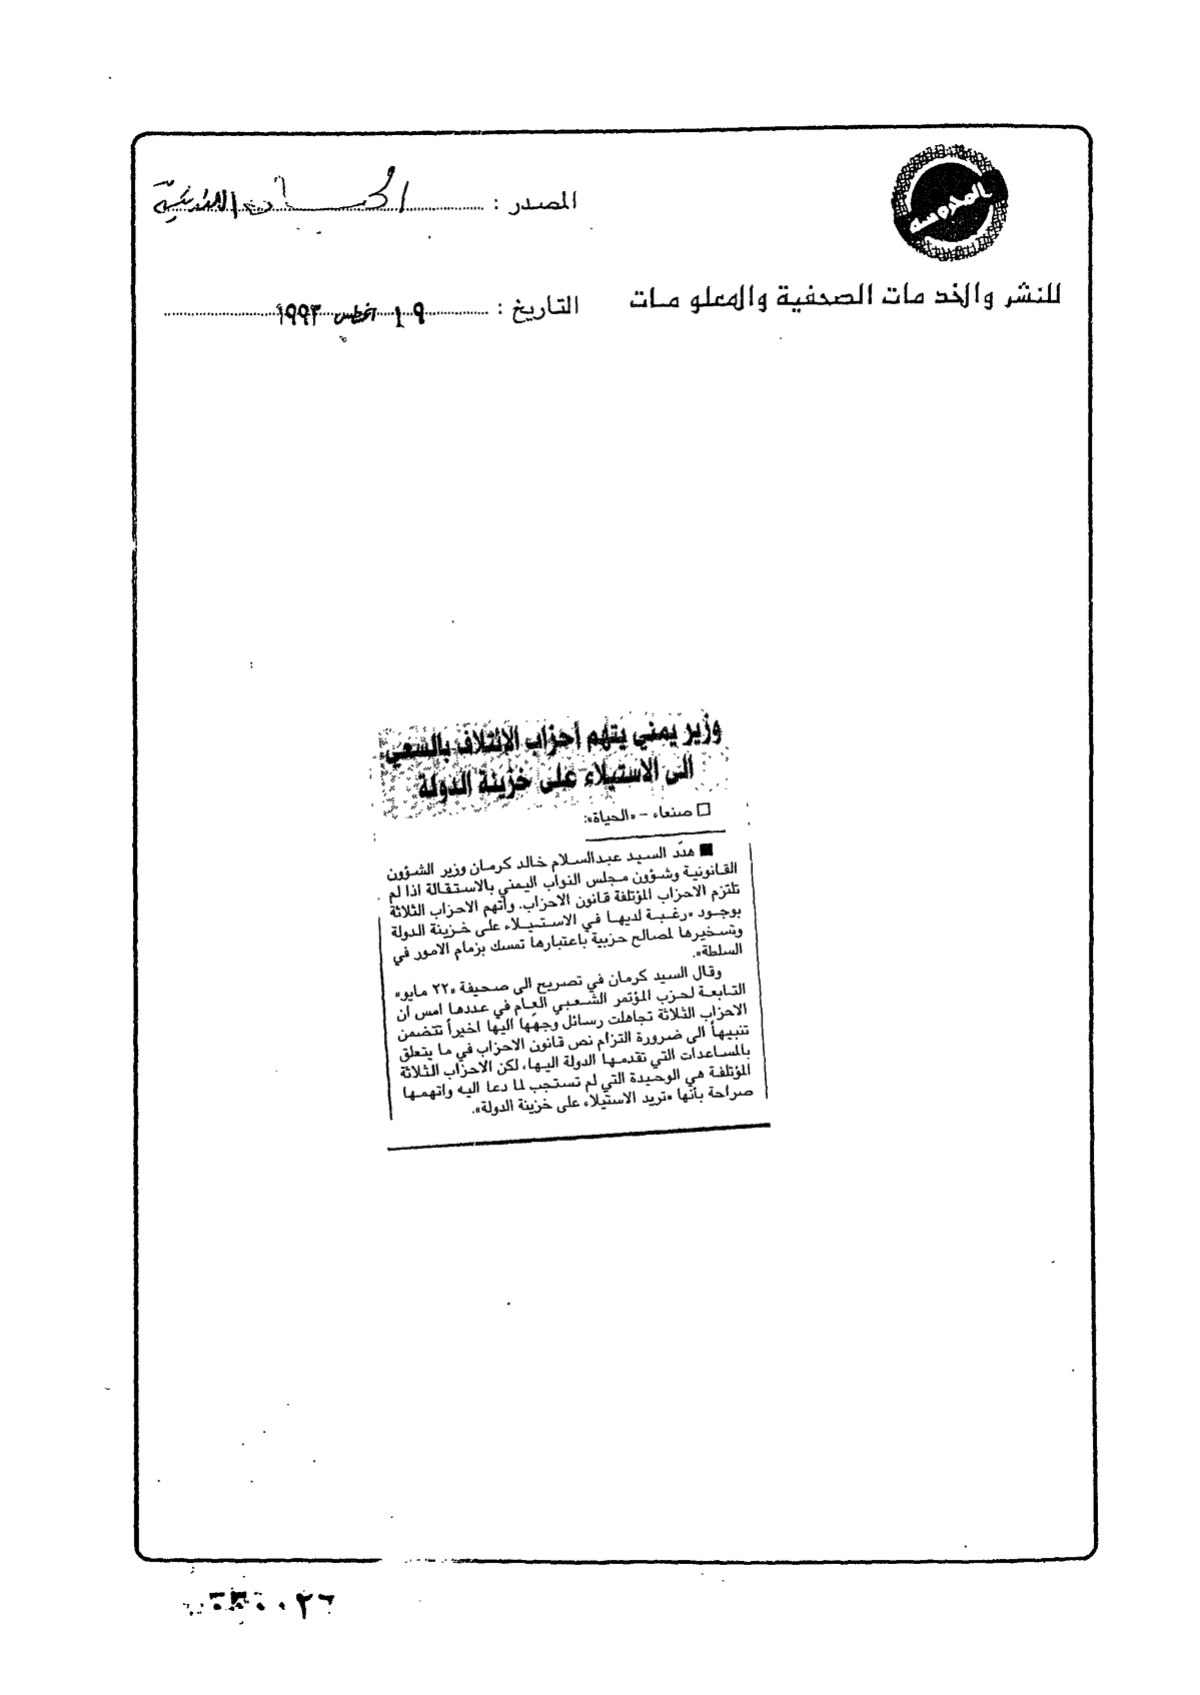 المحروسة
للنشر والخدمات الصحفية والمعلومات
المصدر : الحياة اللندنية
التاريخ : ١٩ أغسطس ١٩٩٣
وزير يمني يتهم أحزاب الائتلاف بالسعي
الى الاستيلاء على خزينة الدولة
□ صنعاء – «الحياة»:
■ هدّد السيد عبدالسلام خالد كرمان وزير الشؤون
القانونية وشؤون مجلس النواب اليمني بالاستقالة اذا لم
تلتزم الاحزاب المؤتلفة قانون الاحزاب. واتهم الاحزاب الثلاثة
بوجود «رغبة لديها في الاستيلاء على خزينة الدولة
وتسخيرها لمصالح حزبية باعتبارها تمسك بزمام الامور في
السلطة».
وقال السيد كرمان في تصريح الى صحيفة «٢٢ مايو»
التابعة لحزب المؤتمر الشعبي العام في عددها امس ان
الاحزاب الثلاثة تجاهلت رسائل وجهها اليها اخيراً تتضمن
تنبيهاً الى ضرورة التزام نص قانون الاحزاب في ما يتعلق
بالمساعدات التي تقدمها الدولة اليها، لكن الاحزاب الثلاثة
المؤتلفة هي الوحيدة التي لم تستجب لما دعا اليه واتهمها
صراحة بأنها «تريد الاستيلاء على خزينة الدولة».